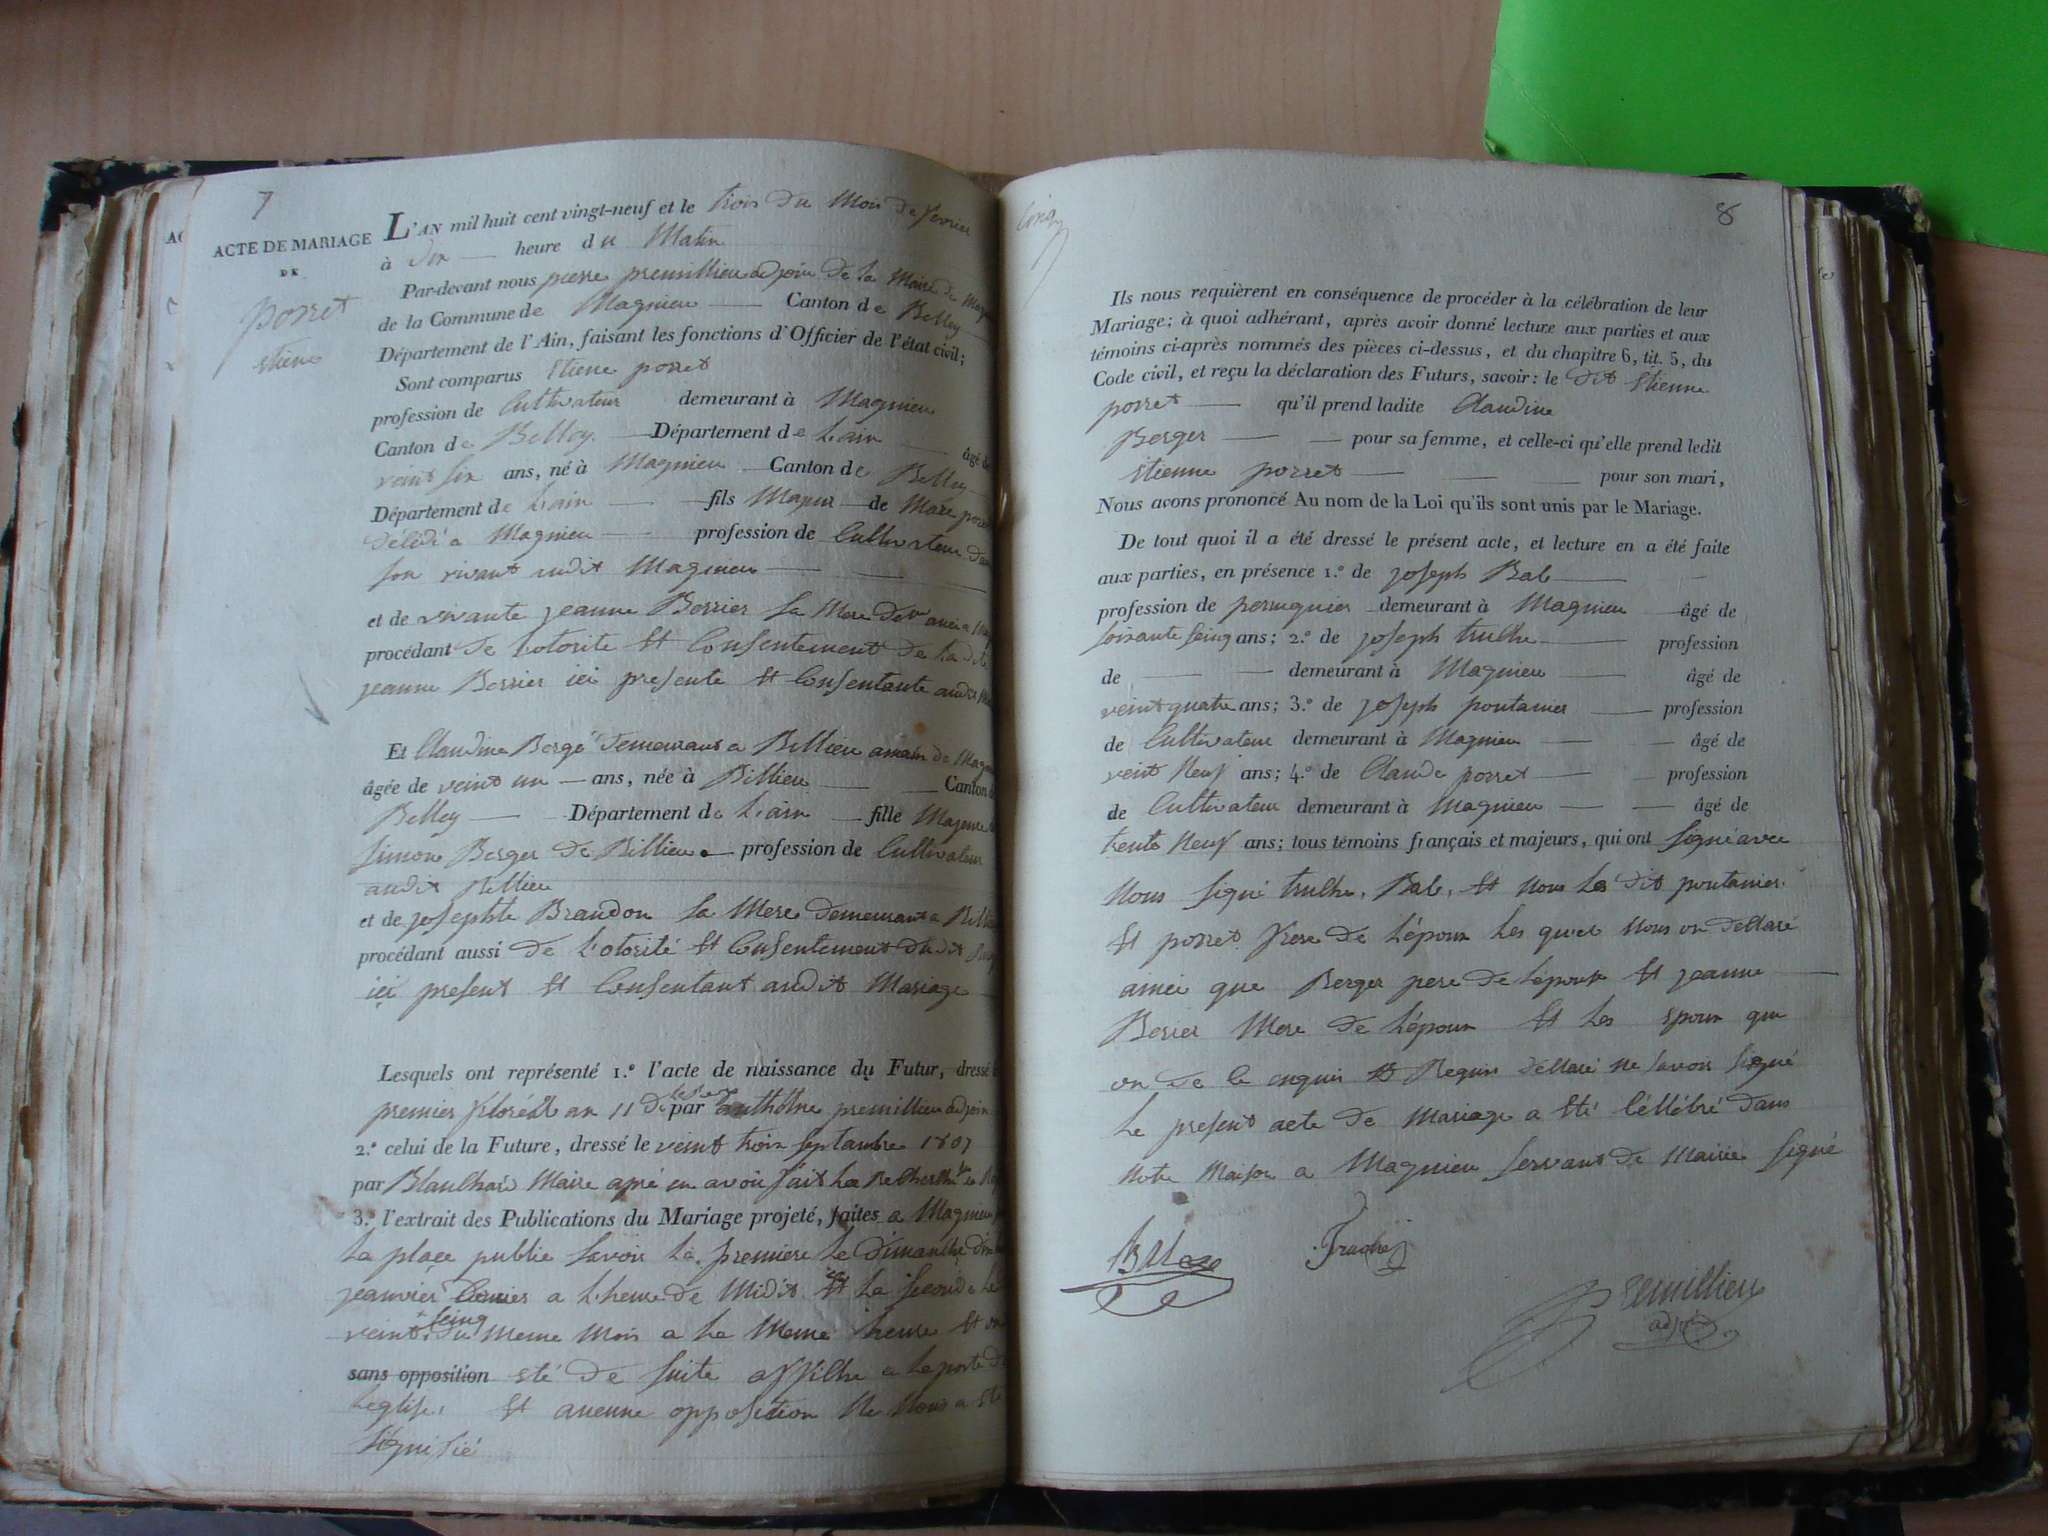 7
ACTE DE MARIAGE
DE
porret
étiene
L'AN mil huit cent vingt-neuf et le trois du Mois de fevrier
à dix heure du Matin
Par-devant nous pierre premillieu adjoin de la Mairie de
de la Commune de Magnieu Canton de Belley
Département de l'Ain, faisant les fonctions d'Officier de l'état civil;
Sont comparus Etiene porret
profession de Cultivateur demeurant à Magnieu
Canton de Belley Département de Lain âgé de
veint six ans, né à Magnieu Canton de Belley
Département de Lain fils Majeur de Marc
décédé a Magnieu profession de Cultivateur
son vivant audit Magnieu
et de vivante jeanne Berrier sa Mere
procédant de L'otorite Et Consentement de Ladite
jeanne Berrier ici presente Et Consentante audit
Et Claudine Bergé demeurant a Billieu de
âgée de veint un ans, née à Billieu Canton
Belley Département de Lain fille Majeure
simon Berger de Billieu profession de Cultivateur
audit Billieu
et de josephte Brandon sa Mere demeurant a
procédant aussi de L'otorité Et Consentement dudit
ici present Et Consentant audit Mariage
Lesquels ont représenté 1.º l'acte de naissance du Futur, dressé
premier floréal an 11 par anthoine premillieu adjoin
2.º celui de la Future, dressé le veint trois septambre 1807
par Blanchard Maire apré en avoir fait La Recherche
3.º l'extrait des Publications du Mariage projeté, faites a Magnieu
La place public savoir La premiere Le dimanche
jeanvier a L'heure de Midit Et La seconde Le
veint seinq du Meme Mois a La Meme heure Et
sans opposition été de suite affiche a La porte
L'eglise, Et aucune opposition Ne Nous a Eté
signifié
Cinq
8
Ils nous requièrent en conséquence de procéder à la célébration de leur
Mariage; à quoi adhérant, après avoir donné lecture aux parties et aux
témoins ci-après nommés des pièces ci-dessus, et du chapitre 6, tit. 5, du
Code civil, et reçu la déclaration des Futurs, savoir: le dit Etienne
porret qu'il prend ladite Claudine
Berger pour sa femme, et celle-ci qu'elle prend ledit
Etienne porret pour son mari,
Nous avons prononcé Au nom de la Loi qu'ils sont unis par le Mariage.
De tout quoi il a été dressé le présent acte, et lecture en a été faite
aux parties, en présence 1.º de joseph Bal
profession de perruquier demeurant à Magnieu âgé de
soixante seinq ans; 2.º de joseph truche profession
de demeurant à Magnieu âgé de
veint quatre ans; 3.º de joseph pontanier profession
de Cultivateur demeurant à Magnieu âgé de
veint Neuf ans; 4.º de Claude porret profession
de Cultivateur demeurant à Magnieu âgé de
trente Neuf ans; tous témoins français et majeurs, qui ont signé avec
Nous signé truche, Bal, Et Nous Le dit pontanier
Et porret frere de L'époux Les quel Nous on dellaré
ainci que Berger pere de Lepouse Et jeanne
Berier Mere de L'époux Et Les epoux qui
on de ce enquis Et Requis dellaré Ne savoir signé
Le present acte de Mariage a été Cellébré dans
Notre Maison a Magnieu servant de Mairie signé
Truche
Premillieu
adjoin